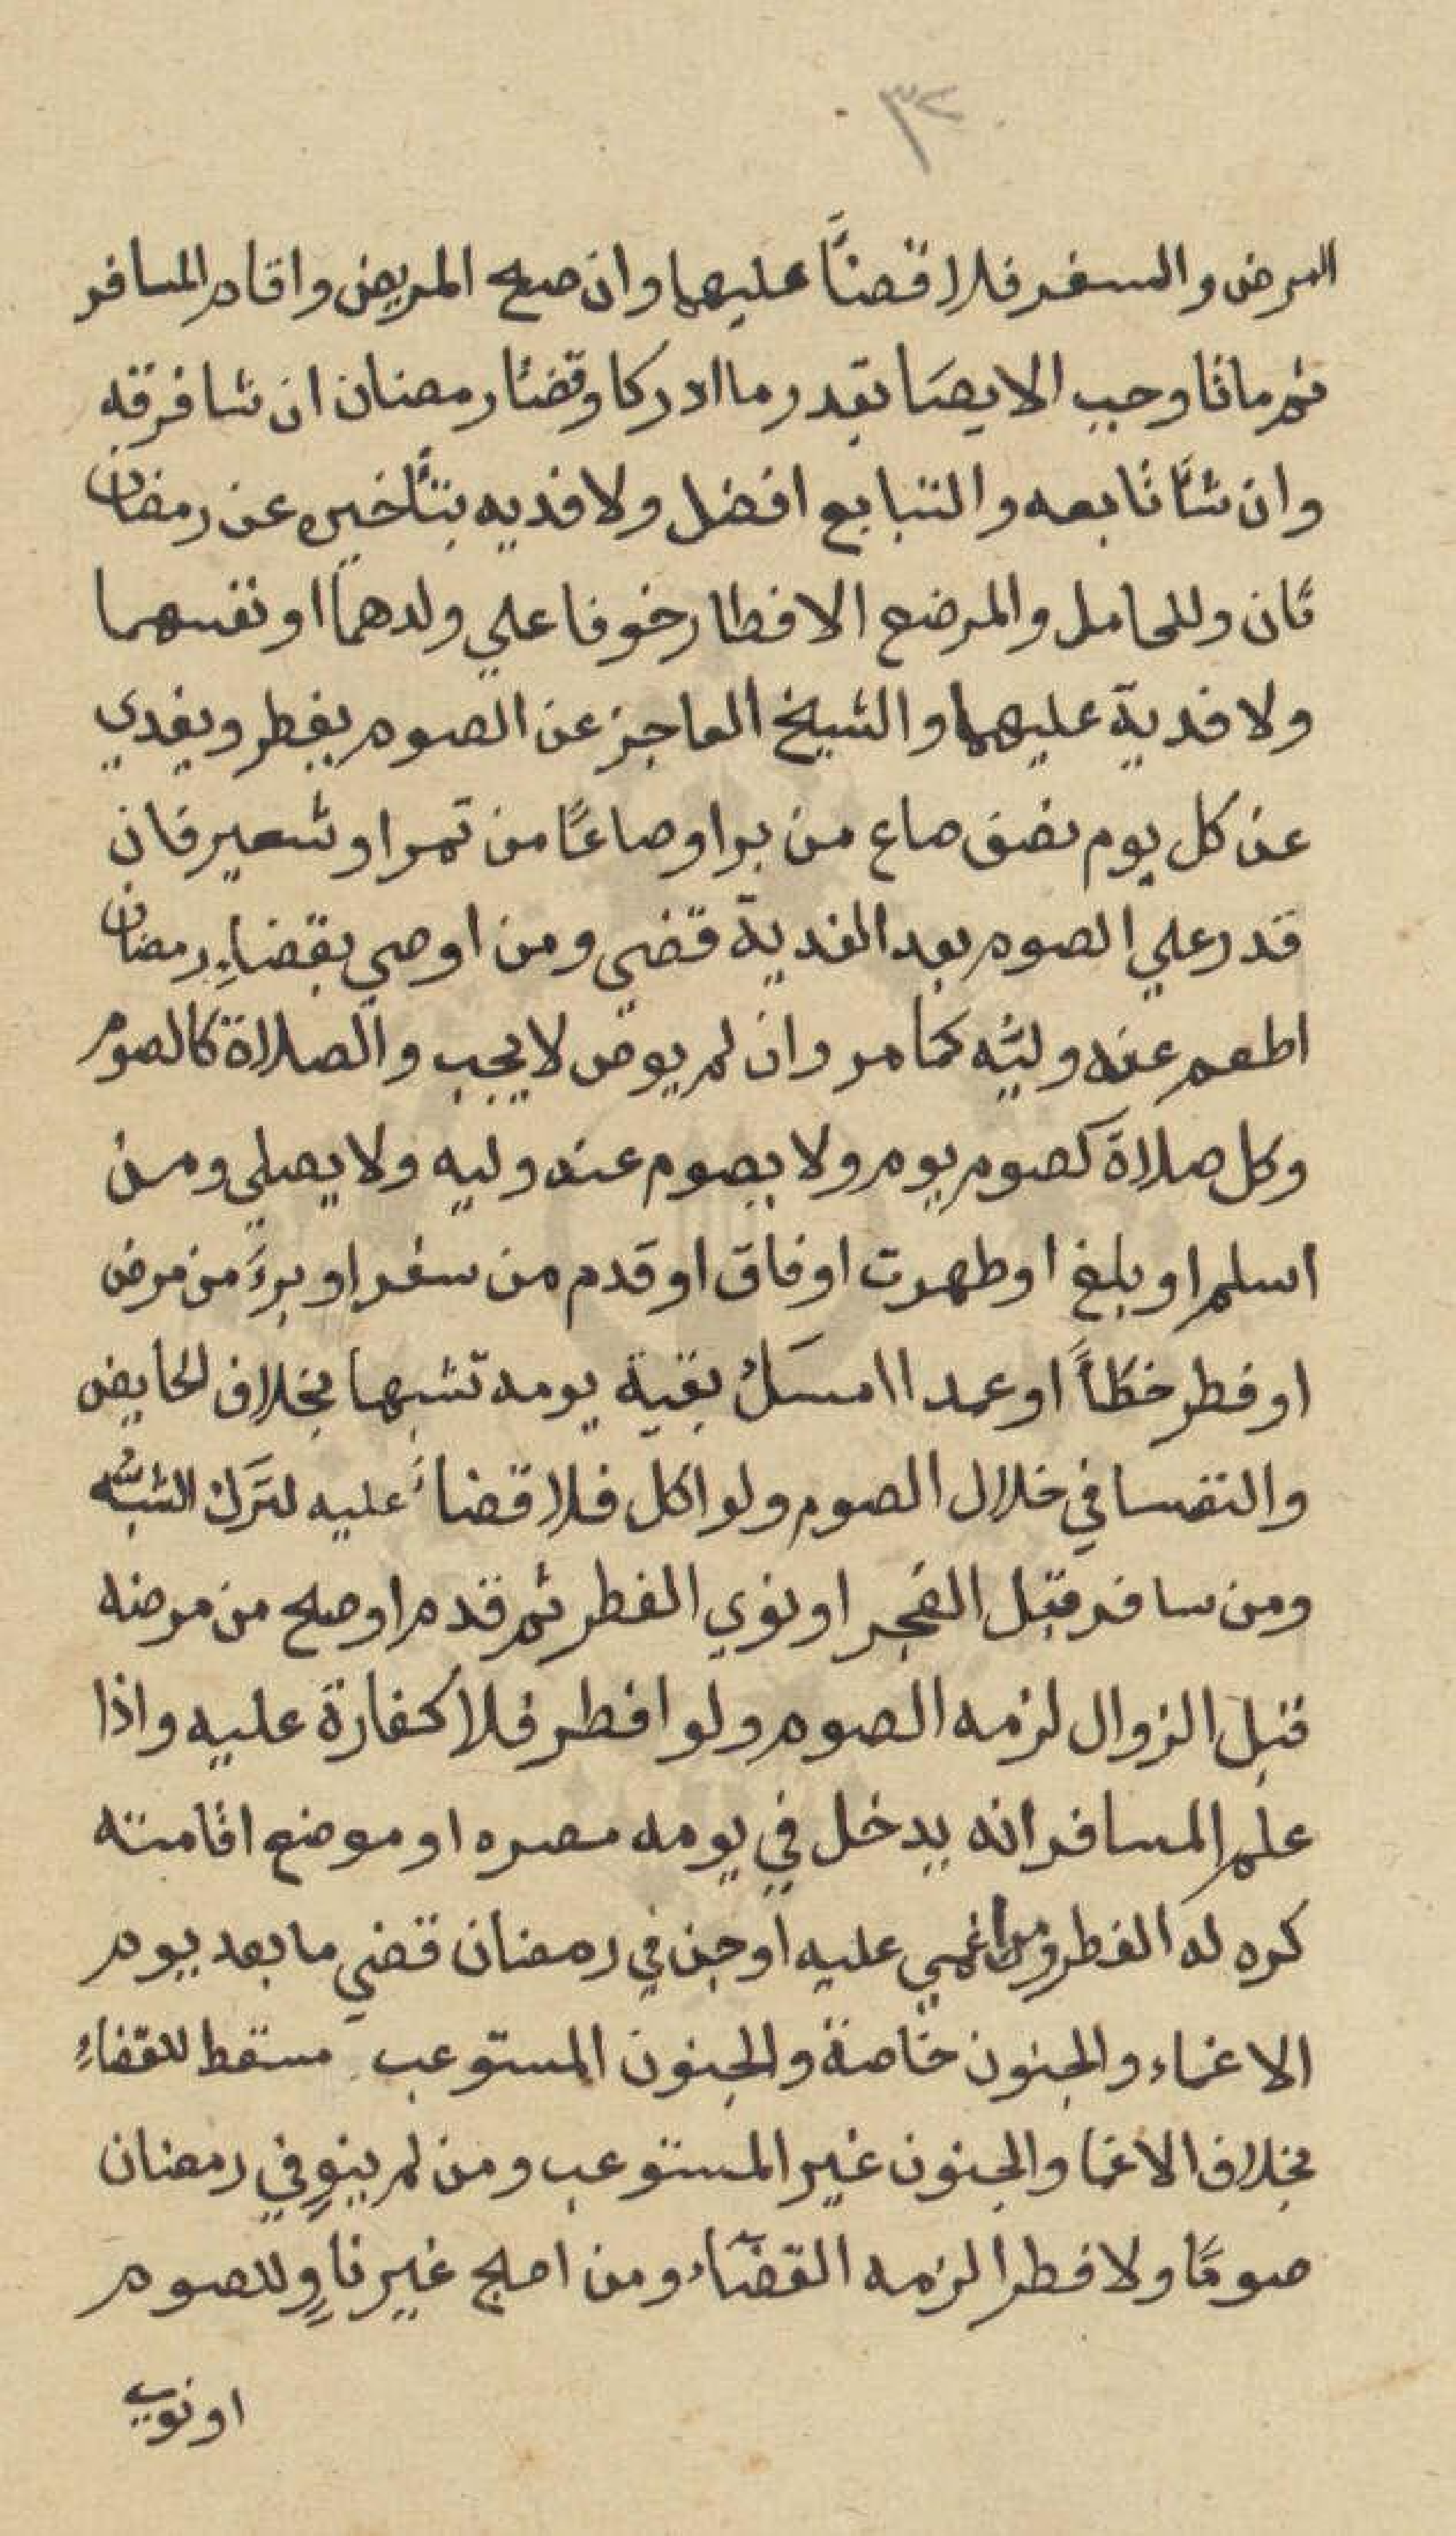 ٣٢
المرض والسفر فلا قضاً عليهما وان صح المريض واقام المسافر
ثم ماتا وجب الايصا بقدر ما ادركا وقضا رمضان ان شا فرقه
وان شاً تابعه والتتابع افضل ولا فديه بتأخيره عن رمضان
ثان وللحامل والمرضع الافطار خوفا علي ولدهما او نفسهما
ولا فدية عليهما والشيخ العاجز عن الصوم يفطر ويفدي
عن كل يوم نصف صاع من بر او صاعًا من تمر او شعير فان
قدر علي الصوم بعد الفدية قضي ومن اوصي بقضاءِ رمضان
اطعم عنه وليّه كما مر وان لم يوص لا يجب والصلاة كالصوم
وكل صلاة كصوم يوم ولا يصوم عنه وليه ولا يصلي ومن
اسلم او بلغ او طهرت او فاق او قدم من سفر او برءَ من مرض
او فطر خطأً او عمدا امسك بقية يومه تشبها بخلاف الحايض
والنفسا في خلال الصوم ولو اكل فلا قضاءَ عليه لترك التشبُّه
ومن سافر قبل الفجر او نوي الفطر ثم قدم او صح من مرضه
قبل الزوال لزمه الصوم ولو افطر فلا كفارة عليه واذا
علم المسافر انه يدخل في يومه مصره او موضع اقامته
كره له الفطر ومن اغمي عليه او جن في رمضان قضي ما بعد يوم
الاغماء والجنون خاصة والجنون المستوعب مسقط للقضاءِ
بخلاف الاغما والجنون غير المستوعب ومن لم ينوِ في رمضان
صومًا ولا فطرا لزمه القضاء ومن اصبح غير ناوٍ للصوم
او نوي